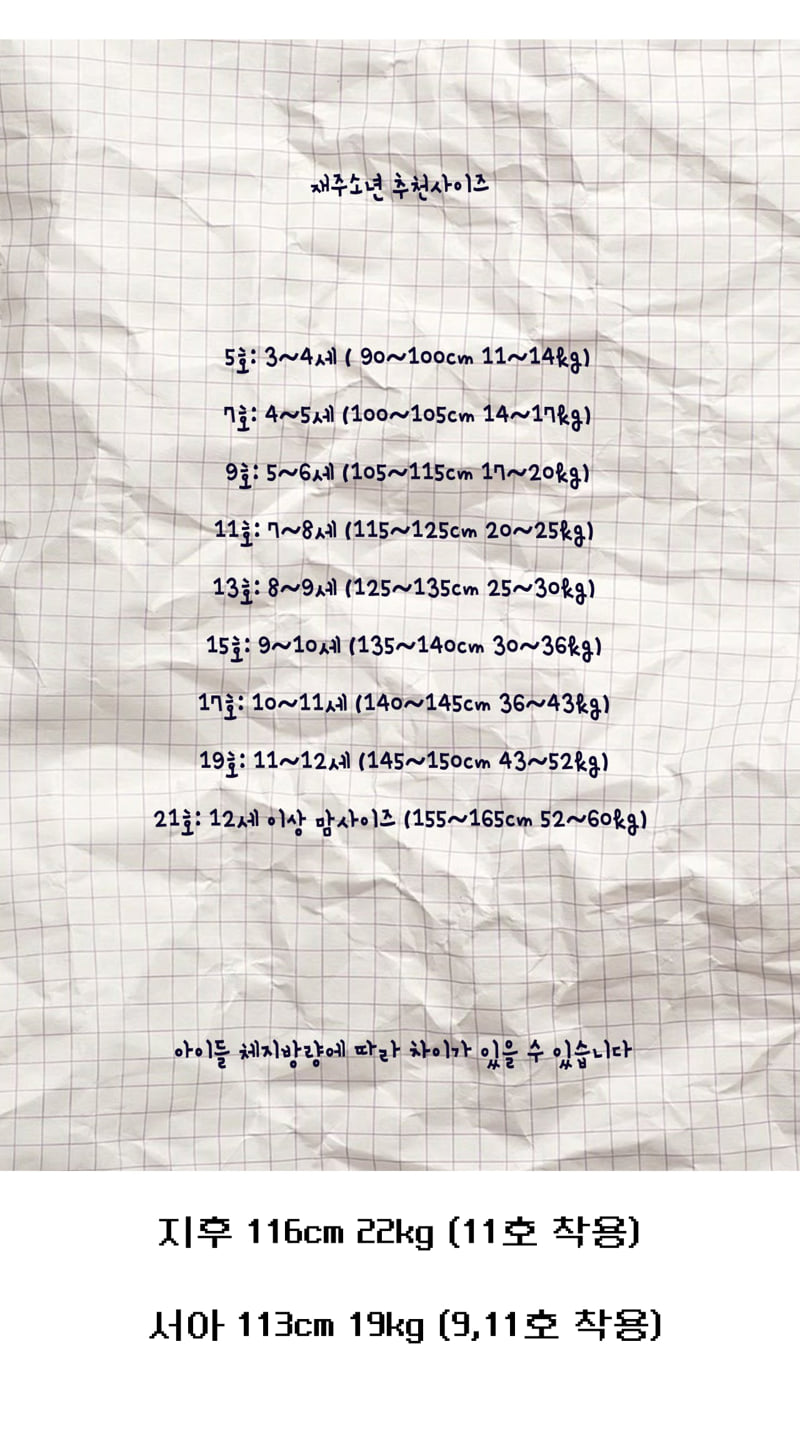 재주소년 추천사이즈
5호: 3~4세 ( 90~100cm 11~14kg)
7호: 4~5세 (100~105cm 14~17kg)
9호: 5~6세 (105~115cm 17~20kg)
11호: 7~8세 (115~125cm 20~25kg)
13호: 8~9세 (125~135cm 25~30kg)
15호: 9~10세 (135~140cm 30~36kg)
17호: 10~11세 (140~145cm 36~43kg)
19호: 11~12세 (145~150cm 43~52kg)
21호: 12세 이상 맘사이즈 (155~165cm 52~60kg)
아이들 체지방량에 따라 차이가 있을 수 있습니다
지후 116cm 22kg (11호 착용)
서아 113cm 19kg (9,11호 착용)